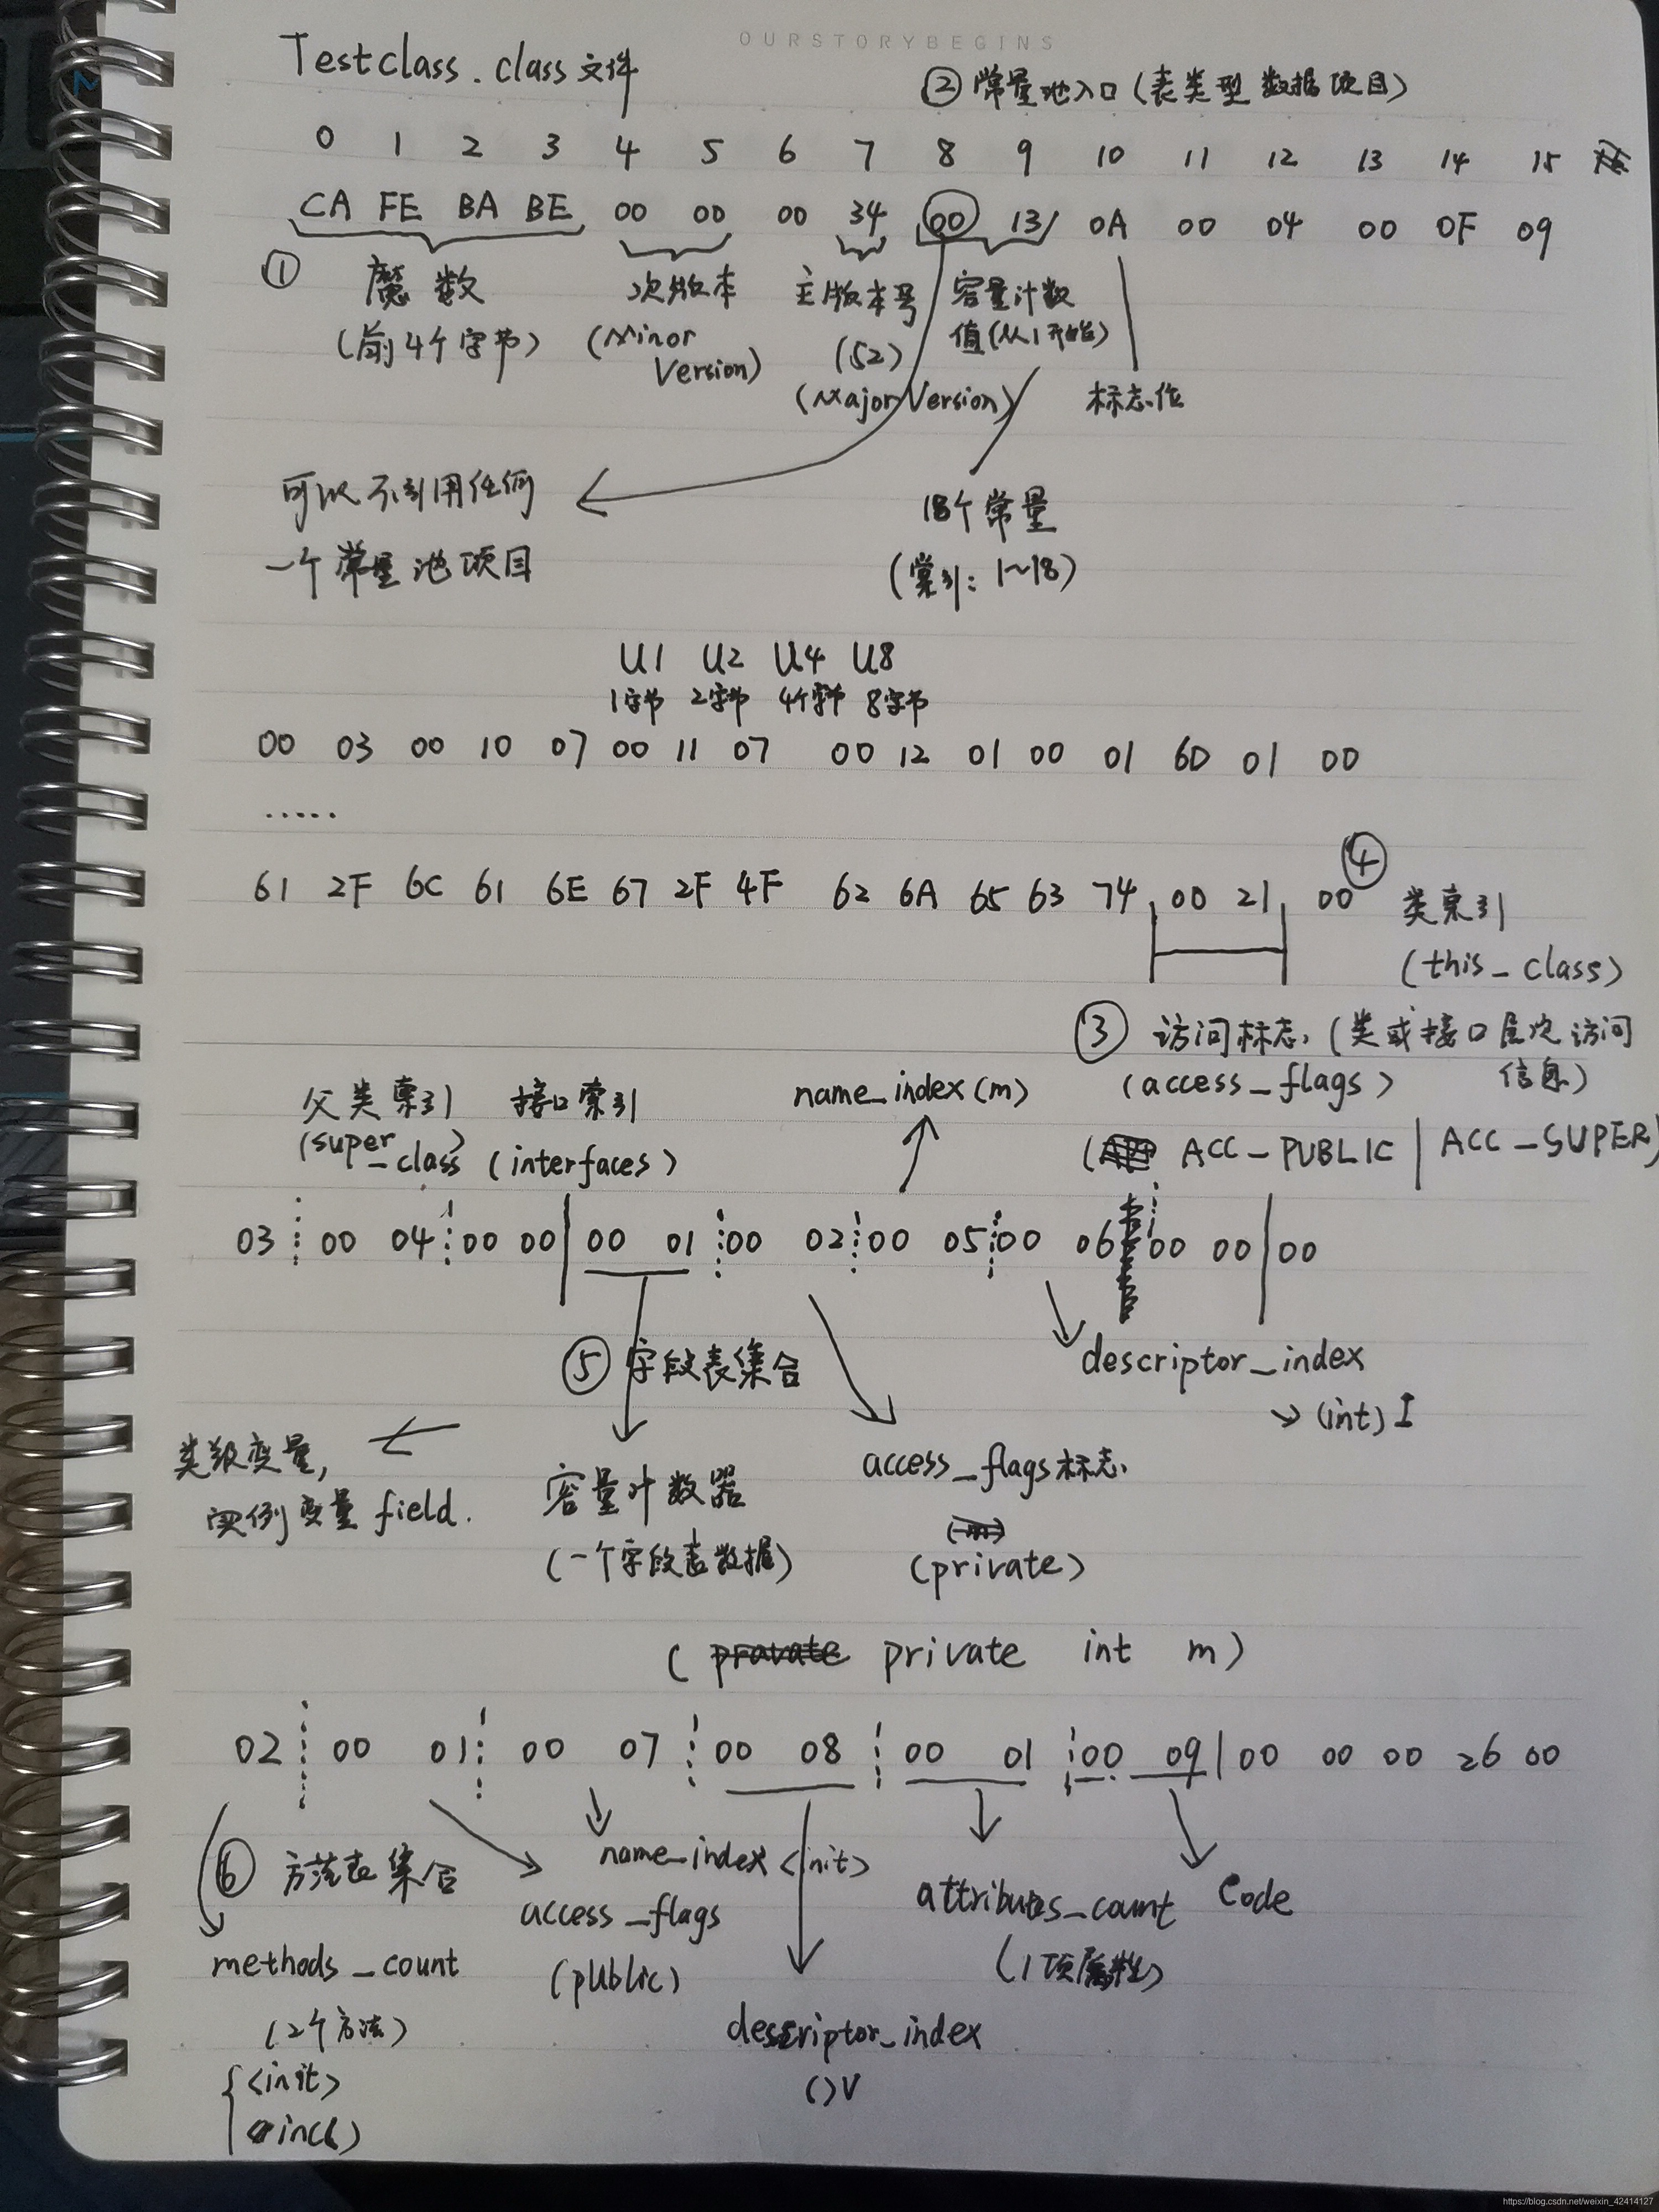 OURSTORYBEGINS
Testclass.class文件
② 常量池入口(表类型数据项目)
0 1 2 3 4 5 6 7 8 9 10 11 12 13 14 15
CA FE BA BE 00 00 00 34 00 13 0A 00 04 00 0F 09
① 魔数 次版本 主版本号 容量计数
(前4个字节) (Minor (52) 值(从1开始)
Version) (Major Version) 标志位
可以不引用任何 18个常量
一个常量池项目 (索引:1~18)
U1 U2 U4 U8
1字节 2字节 4个字节 8字节
00 03 00 10 07 00 11 07 00 12 01 00 01 6D 01 00
.....
61 2F 6C 61 6E 67 2F 4F 62 6A 65 63 74 00 21 00 ④ 类索引
(this_class)
③ 访问标志(类或接口层次访问
(access_flags) 信息)
父类索引 接口索引 name_index(m)
(super_class) (interfaces) (ACC_PUBLIC | ACC_SUPER)
03 00 04 00 00 00 01 00 02 00 05 00 06 00 00 00
⑤ 字段表集合 descriptor_index
→ (int) I
类级变量, access_flags标志
实例变量 field. 容量计数器
(一个字段表数据) (private)
(private int m)
02 00 01 00 07 00 08 00 01 00 09 00 00 00 26 00
⑥ 方法表集合 name_index <init>
access_flags attributes_count Code
methods_count (public) (1项属性)
(2个方法) descriptor_index
<init> ()V
inc()
https://blog.csdn.net/weixin_42414127